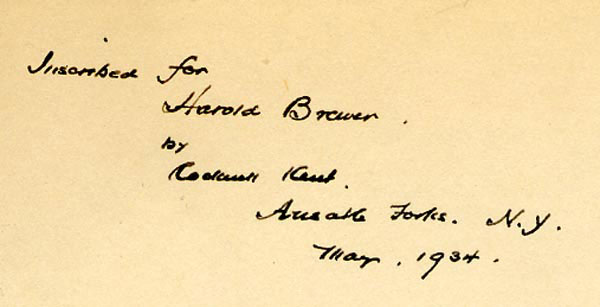 Inscribed for
Harold Brewer.
by
Rockwell Kent.
Ausable Forks. N.Y.
May. 1934.